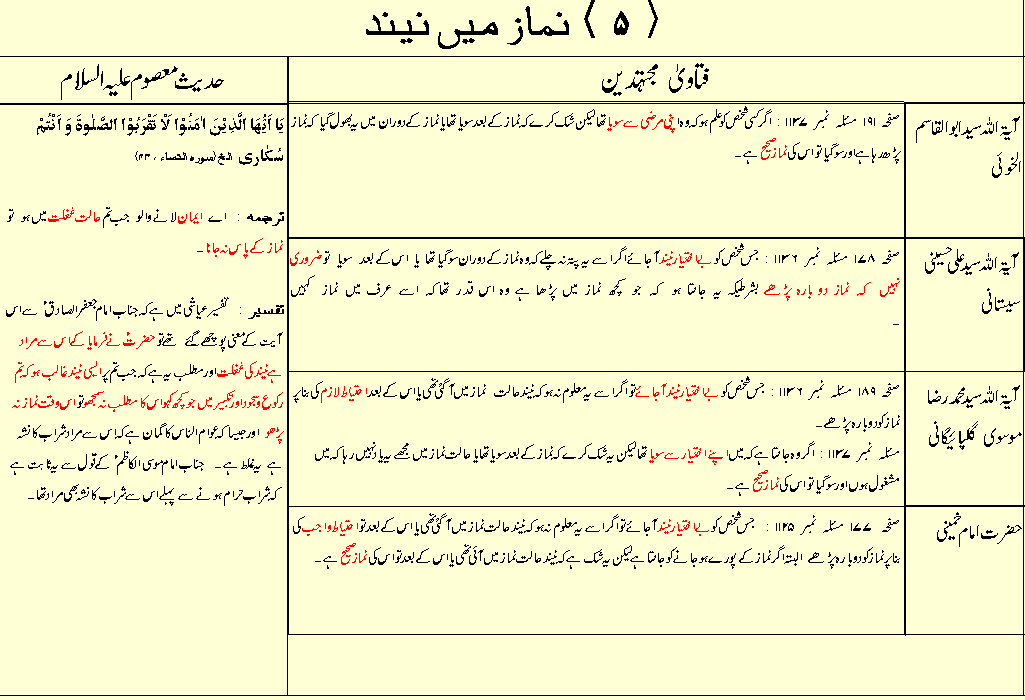 ﴿ ۵ ﴾ نماز میں نیند
فتاویٰ مجتہدین
حدیث معصوم علیہ السلام
آیۃ اللہ سید ابوالقاسم
الخوئی
صفحہ ۱۹۱ مسئلہ نمبر ۱۱۳۷ : اگر کسی شخص کو علم ہو کہ وہ اپنی مرضی سے سویا تھا لیکن شک کرے کہ نماز کے بعد سویا تھا یا نماز کے دوران میں یہ بھول گیا کہ نماز
پڑھ رہا ہے اور سو گیا تو اس کی نماز صحیح ہے ۔
آیۃ اللہ سید علی حسینی
سیستانی
صفحہ ۱۷۸ مسئلہ نمبر ۱۱۳۶ : جس شخص کو بے اختیار نیند آ جائے اگر اسے یہ پتہ نہ چلے کہ وہ نماز کے دوران سو گیا تھا یا اس کے بعد سویا تو ضروری
نہیں کہ نماز دوبارہ پڑھے بشرطیکہ یہ جانتا ہو کہ جو کچھ نماز میں پڑھا ہے وہ اس قدر تھا کہ اسے عرف میں نماز کہیں
۔
آیۃ اللہ سید محمد رضا
موسوی گلپائیگانی
صفحہ ۱۸۹ مسئلہ نمبر ۱۱۳۶ : جس شخص کو بے اختیار نیند آ جائے تو اگر اسے یہ معلوم نہ ہو کہ نیند حالت نماز میں آ گئی تھی یا اس کے بعد احتیاط لازم کی بنا پر
نماز کو دوبارہ پڑھے۔
مسئلہ نمبر ۱۱۳۷ : اگر وہ جانتا ہے کہ میں اپنے اختیار سے سویا تھا لیکن یہ شک کرے کہ نماز کے بعد سویا تھا یا حالت نماز میں مجھے یہ یاد نہیں رہا کہ میں
مشغول ہوں اور سو گیا تو اس کی نماز صحیح ہے ۔
حضرت امام خمینی
صفحہ ۱۷۷ مسئلہ نمبر ۱۱۲۵ : جس شخص کو بے اختیار نیند آ جائے تو اگر اسے یہ معلوم نہ ہو کہ نیند حالت نماز میں آ گئی تھی یا اس کے بعد تو احتیاط واجب کی
بنا پر نماز کو دوبارہ پڑھے البتہ اگر نماز کے پورے ہو جانے کو جانتا ہے لیکن یہ شک ہے کہ نیند حالت نماز میں آئی تھی یا اس کے بعد تو اس کی نماز صحیح ہے ۔
یَا اَیُّهَا الَّذِیْنَ اٰمَنُوْا لَاْ تَقْرَبُوْا الصَّلٰوةَ وَ اَنْتُمْ
سُکٰارٰی الخ (سورہ النساء ، ۴۳)
ترجمہ : اے ایمان لانے والو جب تم حالت غفلت میں ہو تو
نماز کے پاس نہ جانا ۔
تفسیر : تفسیر عیاشی میں ہے کہ جناب امام جعفر الصادقؑ سے اس
آیت کے معنی پوچھے گئے تھے تو حضرتؑ نے فرمایا کے اس سے مراد
ہے نیند کی غفلت اور مطلب یہ ہے کہ جب تم پر ایسی نیند غالب ہو کہ تم
رکوع و سجود اور تکبیر میں جو کچھ کہو اس کا مطلب نہ سمجھو تو اس وقت نماز نہ
پڑھو اور جیسا کہ عوام الناس کا گمان ہے کہ اس سے مراد شراب کا نشہ
ہے یہ غلط ہے ۔ جناب امام موسی الکاظمؑ کے قول سے یہ ثابت ہے
کہ شراب حرام ہونے سے پہلے اس سے شراب کا نشہ بھی مراد تھا۔